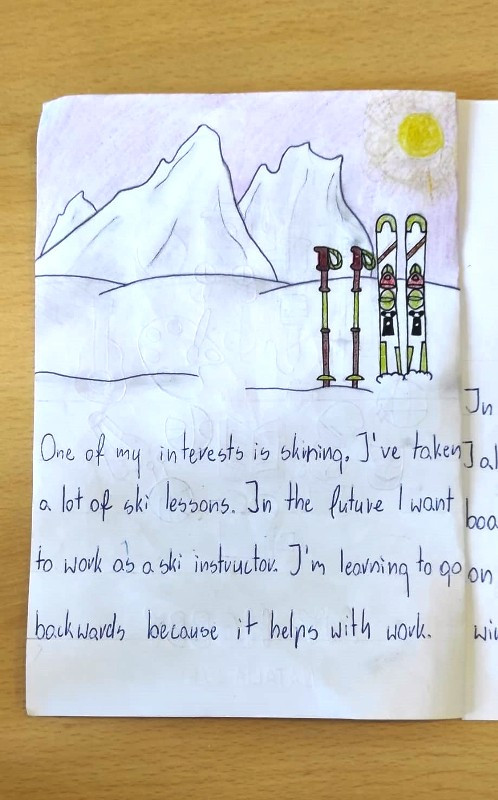 One of my interests is skining. I've taken
a lot of ski lessons. In the future I want
to work as a ski instructor. I'm learning to go
backwards because it helps with work.
In
I
on